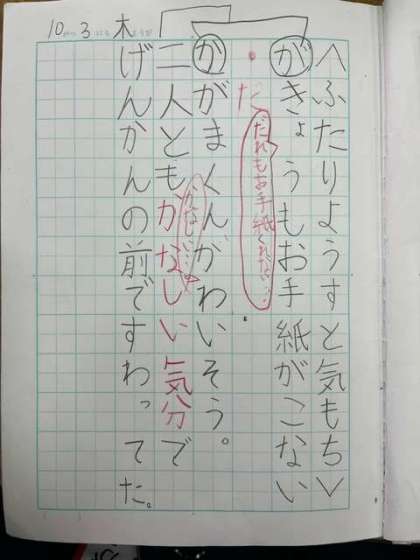 10 3 木
<ふたりようすと気もち>
がきょうもお手紙がこない
・だ
だれもお手紙くれない…
ががまくんがわいそう。
かなしい…
二人ともかなしい気分で
げんかんの前ですわってた。